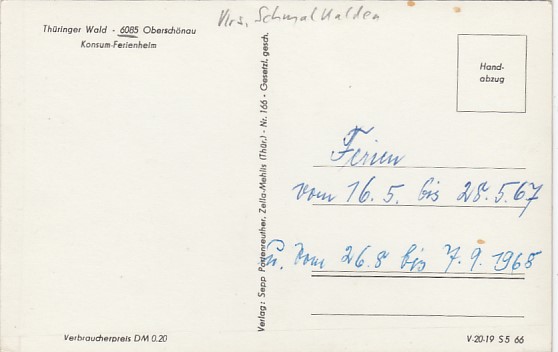 Krs. Schmalkalden
Thüringer Wald - 6085 Oberschönau
Konsum-Ferienheim
Hand-
abzug
Verlag: Sepp Portenreuther, Zella-Mehlis (Thür.) - Nr. 166 - Gesetzl. gesch.
Ferien
vom 16.5. bis 28.5.67
u. vom 26.8 bis 7.9.1968
Verbraucherpreis DM 0.20
V-20-19 S 5 66